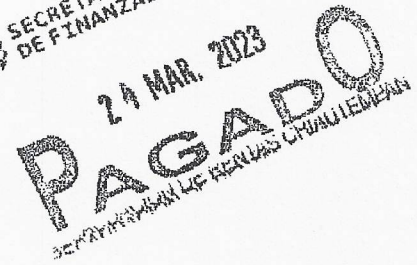 SECRETA
DE FINANZA
24 MAR. 2023
PAGADO
RENTAS CHIAUTEMPAN